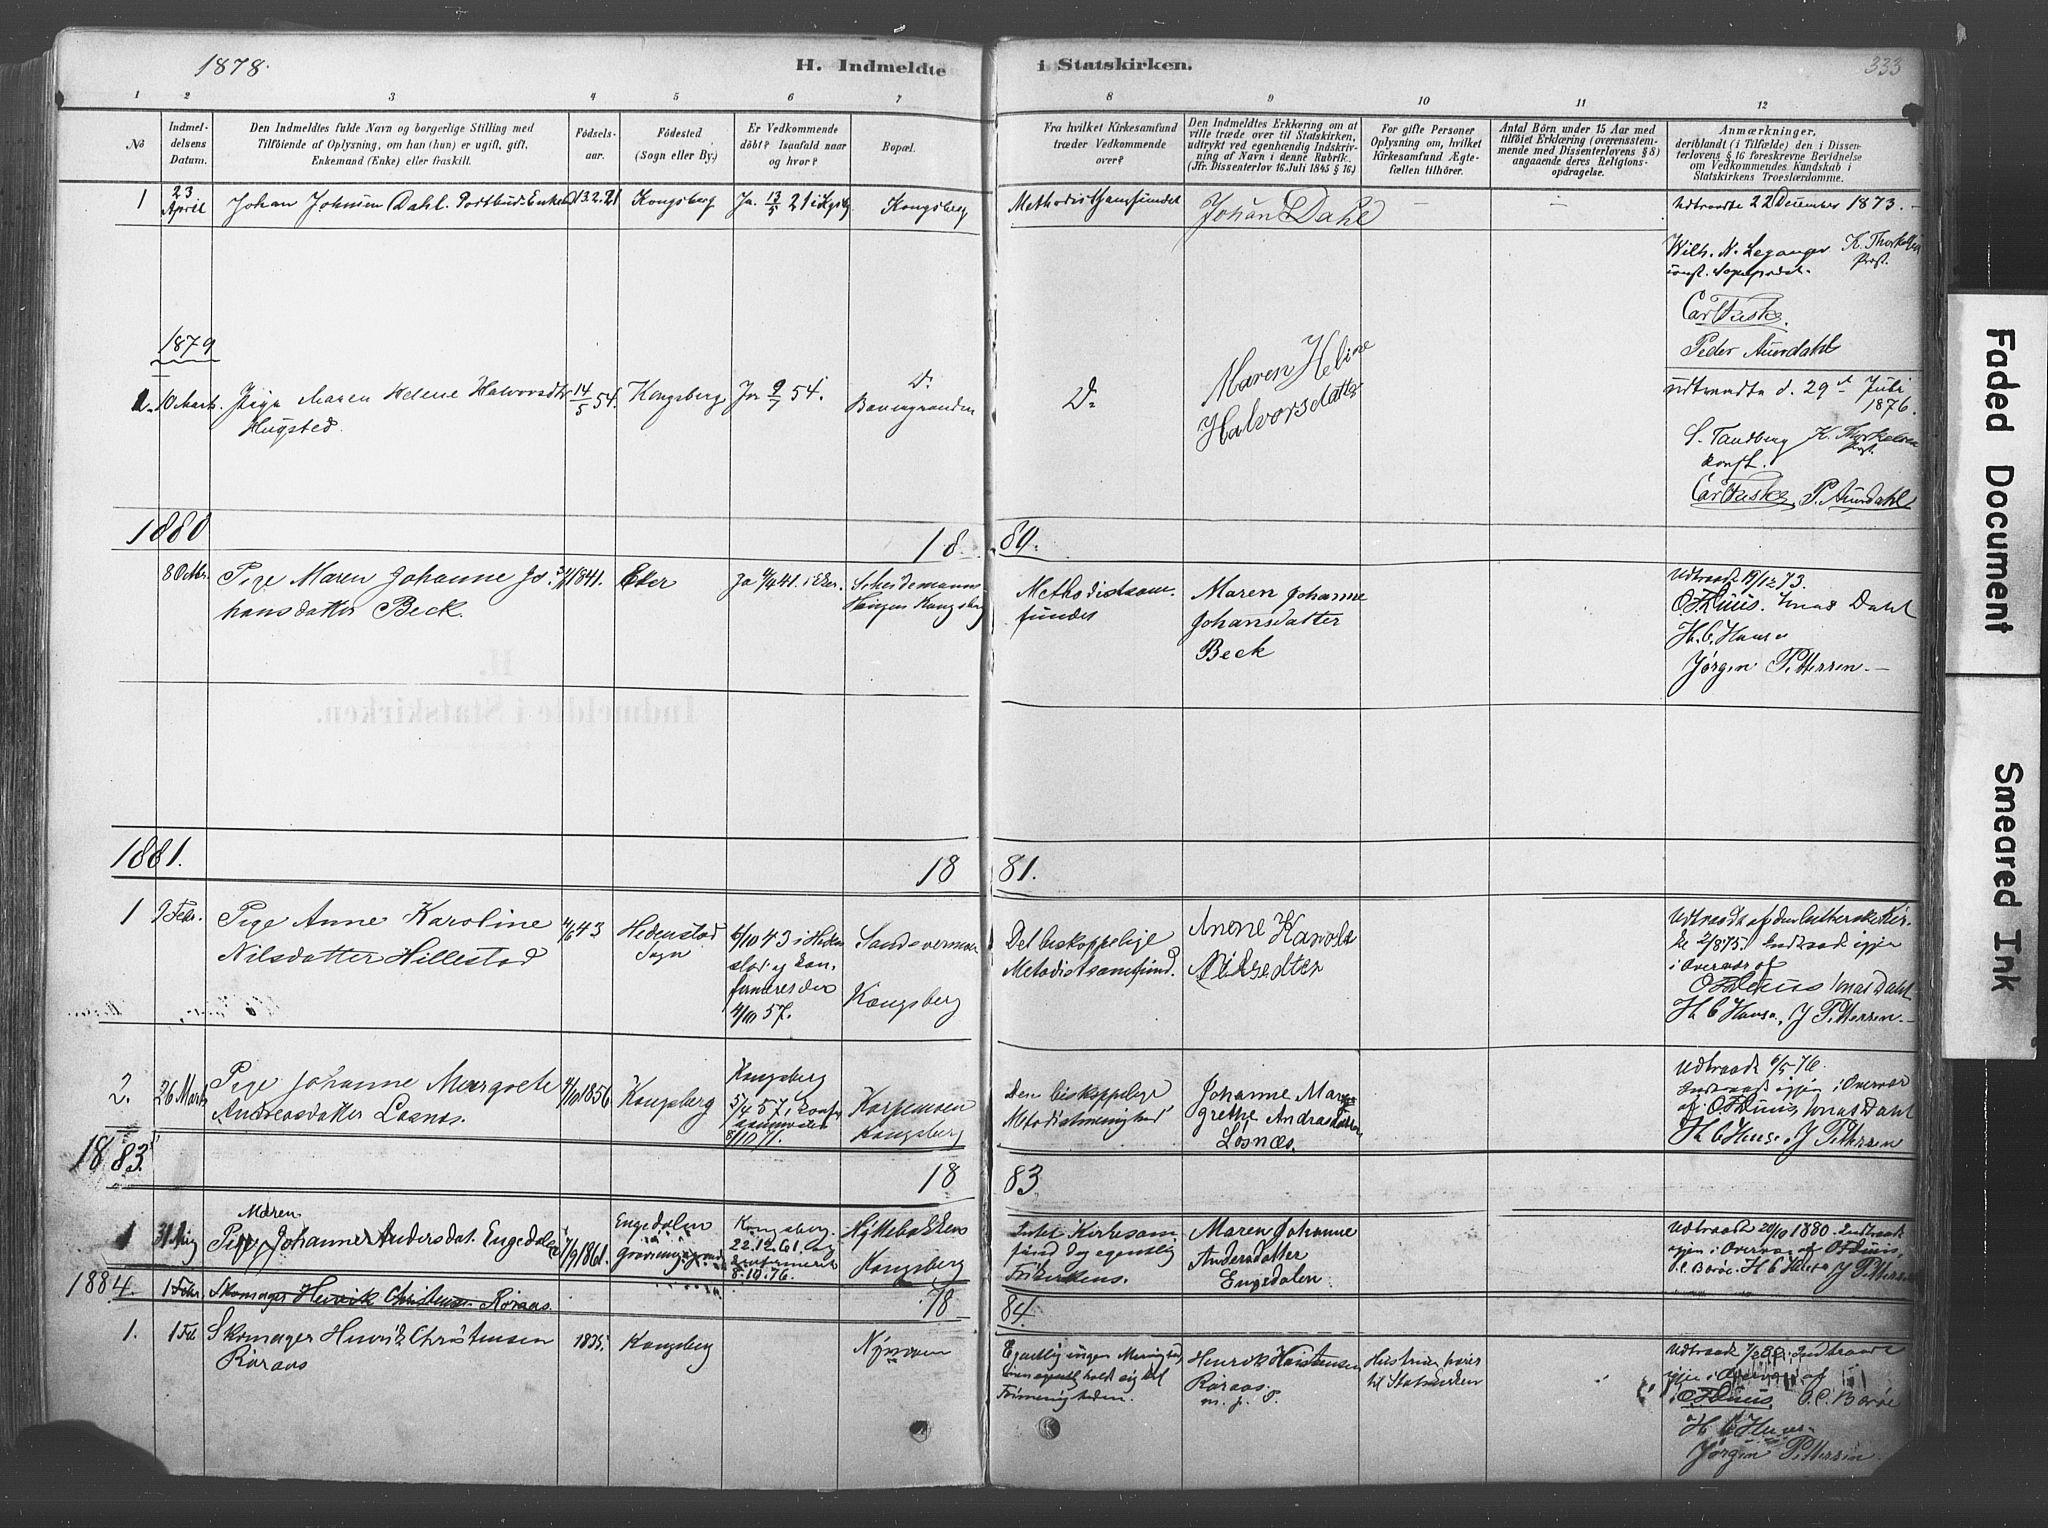 1878.
H. Indmeldte
i Statskirken.
333
1 2 3 4 5 6 7
8 9 10 11 12
No
Indmel-
delsens
Datum.
Den Indmeldtes fulde Navn og borgerlige Stilling med
Tilføiende af Oplysning, om han (hun) er ugift, gift,
Enkemand (Enke) eller fraskilt.
Fødsels-
aar.
Fødested
(Sogn eller By.)
Er Vedkommende
døbt? Isaafald naar
og hvor?
Bopæl.
Fra hvilket Kirkesamfund
træder Vedkommende
over?
Den Indmeldtes Erklæring om at
ville træde over til Statskirken,
udtrykt ved egenhændig Indskriv-
ning af Navn i denne Rubrik.
(Jfr. Dissenterlov 16. Juli 1845 § 16.)
For gifte Personer
Oplysning om, hvilket
Kirkesamfund Ægte-
fællen tilhører.
Antal Børn under 15 Aar med
tilføiet Erklæring (overensstem-
mende med Dissenterlovens § 8)
angaaende deres Religions-
opdragelse.
Anmærkninger,
deriblandt (i Tilfælde) den i Dissen-
terlovens § 16 foreskrevne Bevidnelse
om Vedkommendes Kundskab i
Statskirkens Troeslærdomme.
1
23
April
Johan Johnsen Dahl. Postbud. Enkem.
13.2.21
Kongsberg
Ja. 13/5 21 i Kgsbg
Kongsberg
Methodistsamfundet
Johan Dahl
Udtraadte 22 December 1873.
Wilh. N. Leganger K. Thorkelsen
const. Sogneprest. Prost.
Carl Fuske
Peder Aurdahl
1879
10 Marts.
Pige Maren Helene Halvorsdtr
Hugsted.
14/5 54.
Kongsberg
Ja 9/7 54.
Do
Do
Maren Heline
Halvorsdatter
udtraadte d. 29de Juli
1876.
S. Tandberg K. Thorkelsen
const. Prost.
Carl Fuske, P. Aurdahl
1880
18
80.
8 Octbr.
Pige Maren Johanne Jo-
hansdatter Beck.
1841.
Eker
Ja 41. i Eker.
Kongsberg
Methodistsam-
fundet
Maren Johanne
Johansdatter
Beck
Udtraadt 19/12 73.
O Duus. Jonas Dahl
H. C. Hansen
Jørgen Pettersen
1881.
18
81.
1
9 Febr.
Pige Anne Karoline
Nilsdatter Hillestad
43
Hedenstad
Sogn
6/10 43 i Heden
stad og kon-
firmeres der
4/10 57.
Kongsberg
Det biskoppelige
Metodistsamfund.
Anne Karole
Nilsedter
Udtraadt af den lutherske Kir-
ke 2/8 75. Indtraadt igjen
i Overvær af
O Duus Jonas Dahl
H C Hansen, J Pettersen
2.
26 Marts
Pige Johanne Margrete
Andreasdatter Losnæs.
1856
Kongsberg
Kongsberg
5/4 57,
8/10 71.
Kongsberg
Den biskoppelige
Metodistmenighed
Johanne Mar-
grethe Andrasdatter
Losnæs.
Udtraadt 6/5 76.
Indtraadt igjen i Overvær
af O Duus, Jonas Dahl
H C Hansen, J Pettersen
1883.
18
83.
1
31 Aug
Maren
Pige Johanne Andersdat. Engedalen
7/9 1861.
Engedalen
Kongsberg.
22.12.61. og
konfirmeret
8.10.76.
Hyttebakken
Kongsberg
Intet Kirkesam-
fund dog egentlig
Frikirkens.
Maren Johanne
Andersdatter
Engedalen
Udtraadt 20/10 1880. Indtraadt
igjen i Overvær af O Duus,
O. C. Borøe. H C Hansen J Pettersen
1884.
1 Febr.
Skomager Henrik Christensen Roraas
18
84.
1.
1 Feb
Skomager Henrik Christensen
Roraas
1835
Kongsberg
Nymoen
Egentlig ingen Menighed,
men egentl. holdt sig til
Frimenigheden.
Henrik Kristensen
Roraas
m. p. P.
Hustruen hører
til Statskirken
Udtraadt 80. Indtraadt
igjen i Overvær af
O Duus. O. C. Borøe
H C Hansen
Jørgen Pettersen
Faded Document
Smeared Ink